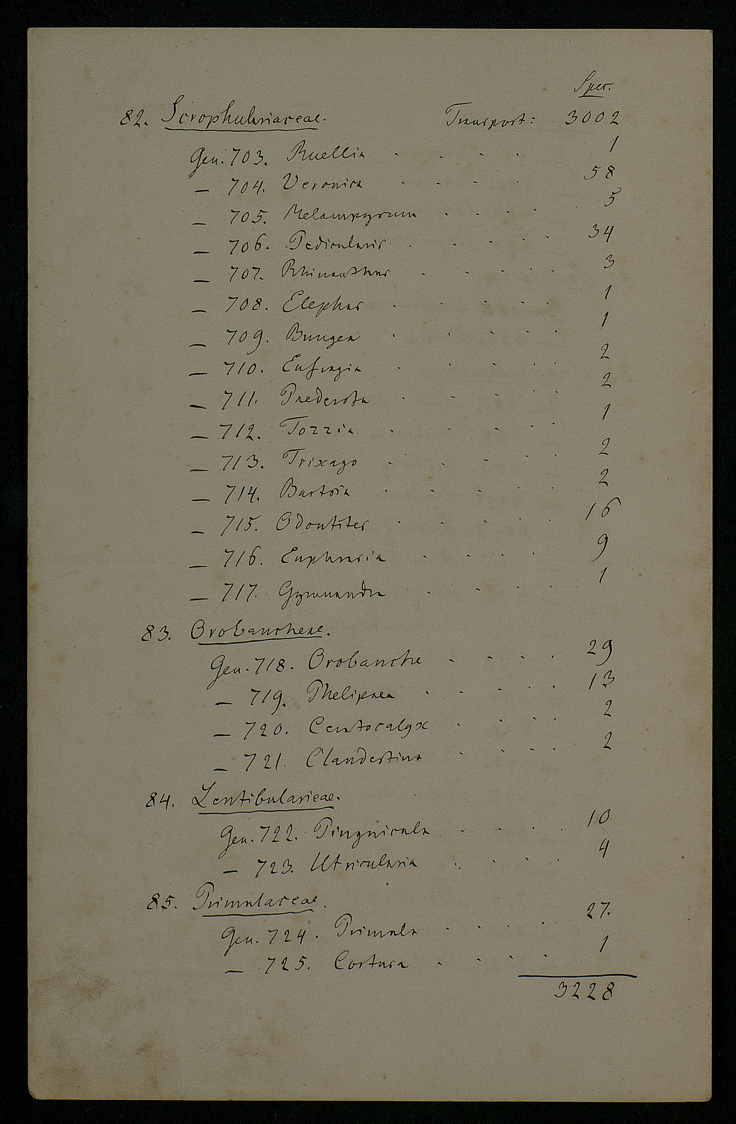 Spec.
82. Scrophulariaceae. Transport: 3002
Gen. 703. Ruellia . . . . 1
— 704. Veronica . . . . 58
— 705. Melampyrum . . . . 5
— 706. Pedicularis . . . . 34
— 707. Rhinanthus . . . . 3
— 708. Elephas . . . . 1
— 709. Bungea . . . . 1
— 710. Eufragia . . . . 2
— 711. Paederota . . . . 2
— 712. Tozzia . . . . 1
— 713. Trixago . . . . 2
— 714. Bartsia . . . . 2
— 715. Odontites . . . . 16
— 716. Euphrasia . . . . 9
— 717. Gymnandra . . . . 1
83. Orobancheae.
Gen. 718. Orobanche . . . . 29
— 719. Phelipaea . . . . 13
— 720. Ceratocalyx . . . . 2
— 721. Clandestina . . . . 2
84. Lentibularieae.
Gen. 722. Pinguicula . . . . 10
— 723. Utricularia . . . . 4
85. Primulaceae.
Gen. 724. Primula . . . . 27.
— 725. Cortusa . . . . 1
3228